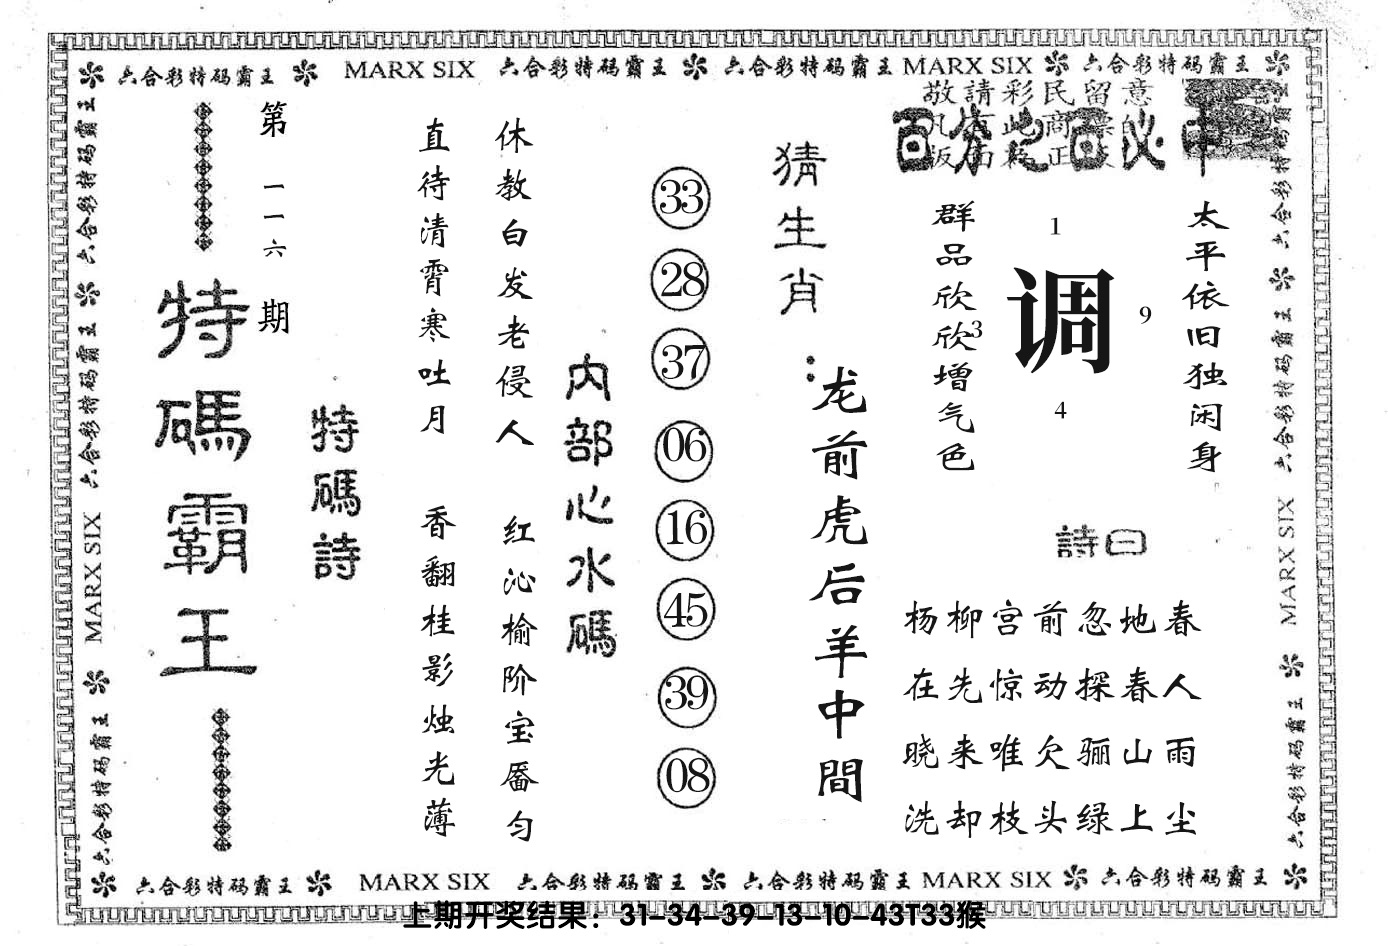 六合彩特码霸王 MARX SIX 六合彩特码霸王 六合彩特码霸王 MARX SIX 六合彩特码霸王
敬請彩民留意
百分之百必中
第一一六期
特碼霸王
特碼詩
直待清霄寒吐月
休教白发老侵人
香翻桂影烛光薄
红沁榆阶宝靥匀
内部心水碼
33
28
37
06
16
45
39
08
猜生肖：
龙前虎后羊中間
群品欣欣增气色
1
3
调
9
4
太平依旧独闲身
詩曰
杨柳宫前忽地春
在先惊动探春人
晓来唯欠骊山雨
洗却枝头绿上尘
六合彩特码霸王 六合彩特码霸王 MARX SIX 六合彩特码霸王
六合彩特码霸王 六合彩特码霸王 MARX SIX 六合彩特码霸王
六合彩特码霸王 MARX SIX 六合彩特码霸王 六合彩特码霸王 MARX SIX 六合彩特码霸王
上期开奖结果：31-34-39-13-10-43T33猴